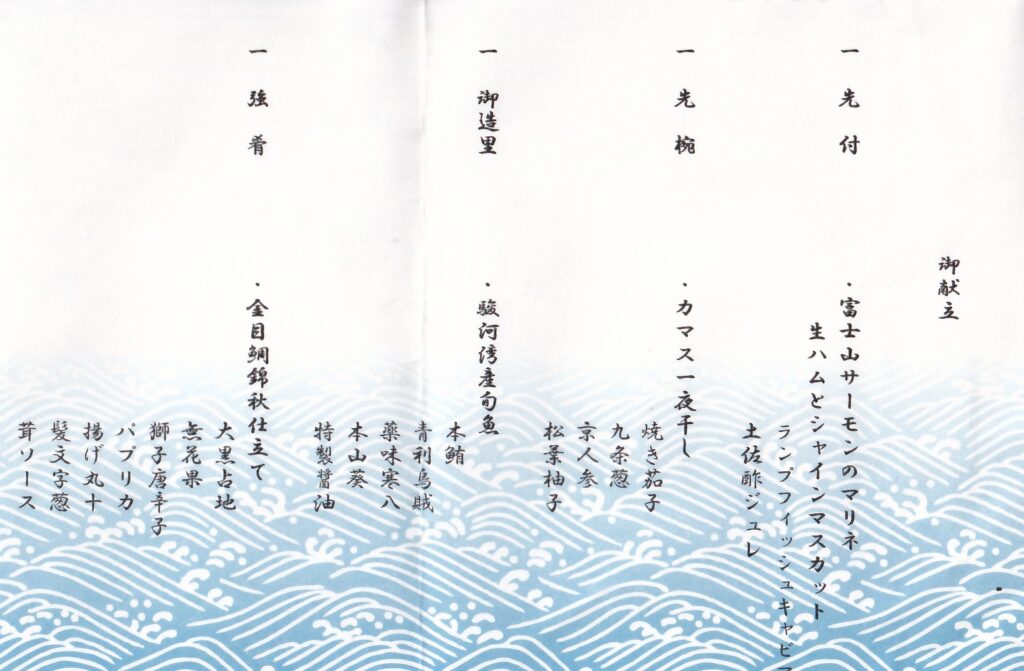 御献立
一 先付
・富士山サーモンのマリネ
生ハムとシャインマスカット
ランプフィッシュキャビ
土佐酢ジュレ
一 先椀
・カマス一夜干し
焼き茄子
九条葱
京人参
松葉柚子
一 御造里
・駿河湾産旬魚
本鮪
青利烏賊
薬味寒八
本山葵
特製醤油
一 強肴
・金目鯛錦秋仕立て
大黒占地
無花果
獅子唐辛子
パプリカ
揚げ丸十
髪文字葱
茸ソース